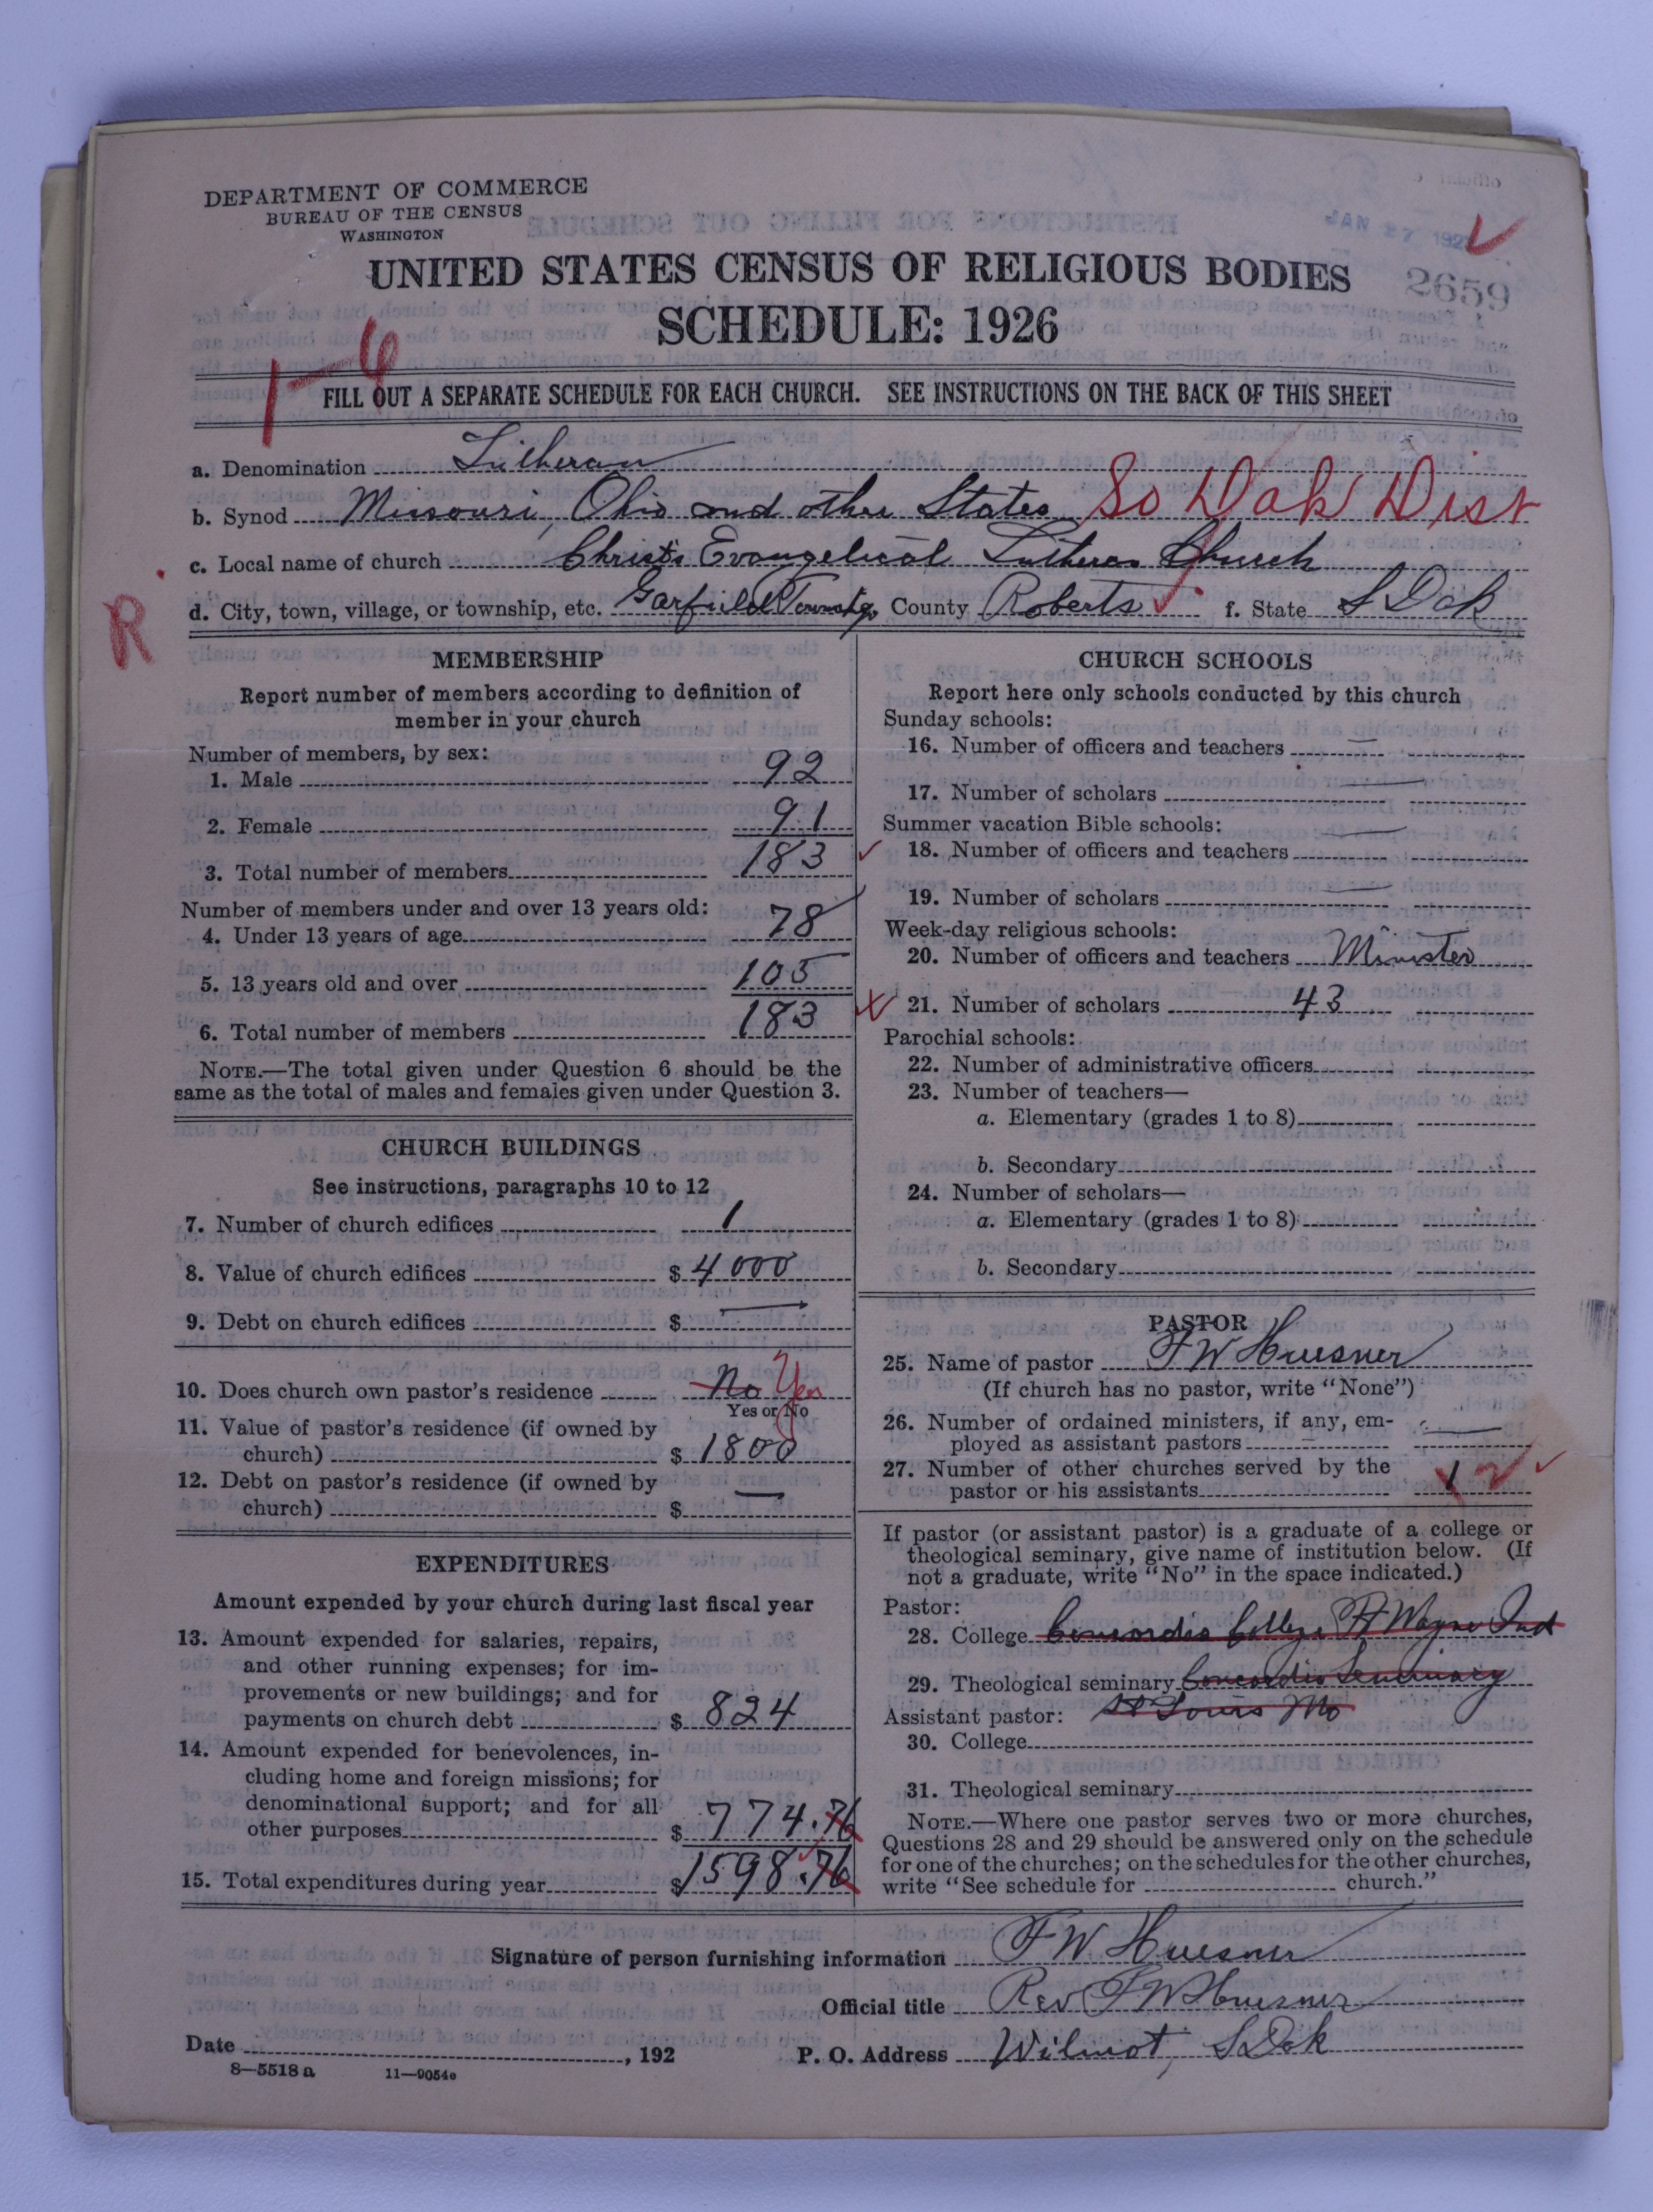 DEPARTMENT OF COMMERCE
BUREAU OF THE CENSUS
WASHINGTON
JAN 27 192
2659
UNITED STATES CENSUS OF RELIGIOUS BODIES
SCHEDULE: 1926
1-6
FILL OUT A SEPARATE SCHEDULE FOR EACH CHURCH. SEE INSTRUCTIONS ON THE BACK OF THIS SHEET
a. Denomination Lutheran
b. Synod Missouri, Ohio and other States So Dak Dist
c. Local name of church Christ's Evangelical Lutheran Church
R
d. City, town, village, or township, etc. Garfield Township County Roberts f. State S Dak
MEMBERSHIP
Report number of members according to definition of
member in your church
Number of members, by sex:
1. Male 92
2. Female 91
3. Total number of members 183
Number of members under and over 13 years old:
4. Under 13 years of age 78
5. 13 years old and over 105
6. Total number of members 183
NOTE.—The total given under Question 6 should be the
same as the total of males and females given under Question 3.
CHURCH BUILDINGS
See instructions, paragraphs 10 to 12
7. Number of church edifices 1
8. Value of church edifices $ 4000
9. Debt on church edifices $ —
10. Does church own pastor's residence No Yes
Yes or No
11. Value of pastor's residence (if owned by
church) $ 1800
12. Debt on pastor's residence (if owned by
church) $ —
EXPENDITURES
Amount expended by your church during last fiscal year
13. Amount expended for salaries, repairs,
and other running expenses; for im-
provements or new buildings; and for
payments on church debt $ 824
14. Amount expended for benevolences, in-
cluding home and foreign missions; for
denominational support; and for all
other purposes $ 774.76
15. Total expenditures during year $ 1598.76
CHURCH SCHOOLS
Report here only schools conducted by this church
Sunday schools:
16. Number of officers and teachers —
17. Number of scholars —
Summer vacation Bible schools:
18. Number of officers and teachers —
19. Number of scholars —
Week-day religious schools:
20. Number of officers and teachers Minister
21. Number of scholars 43
Parochial schools:
22. Number of administrative officers
23. Number of teachers—
a. Elementary (grades 1 to 8)
b. Secondary
24. Number of scholars—
a. Elementary (grades 1 to 8)
b. Secondary
PASTOR
25. Name of pastor F W Huesner
(If church has no pastor, write "None")
26. Number of ordained ministers, if any, em-
ployed as assistant pastors —
27. Number of other churches served by the
pastor or his assistants 1 2
If pastor (or assistant pastor) is a graduate of a college or
theological seminary, give name of institution below. (If
not a graduate, write "No" in the space indicated.)
Pastor:
28. College Concordia College Ft Wayne Ind
29. Theological seminary Concordia Seminary
Assistant pastor: St Louis Mo
30. College
31. Theological seminary
NOTE.—Where one pastor serves two or more churches,
Questions 28 and 29 should be answered only on the schedule
for one of the churches; on the schedules for the other churches,
write "See schedule for church."
Signature of person furnishing information F W Huesner
Official title Rev F W Huesner
Date , 192 P. O. Address Wilmot, S Dak
8—5518 a 11—9054